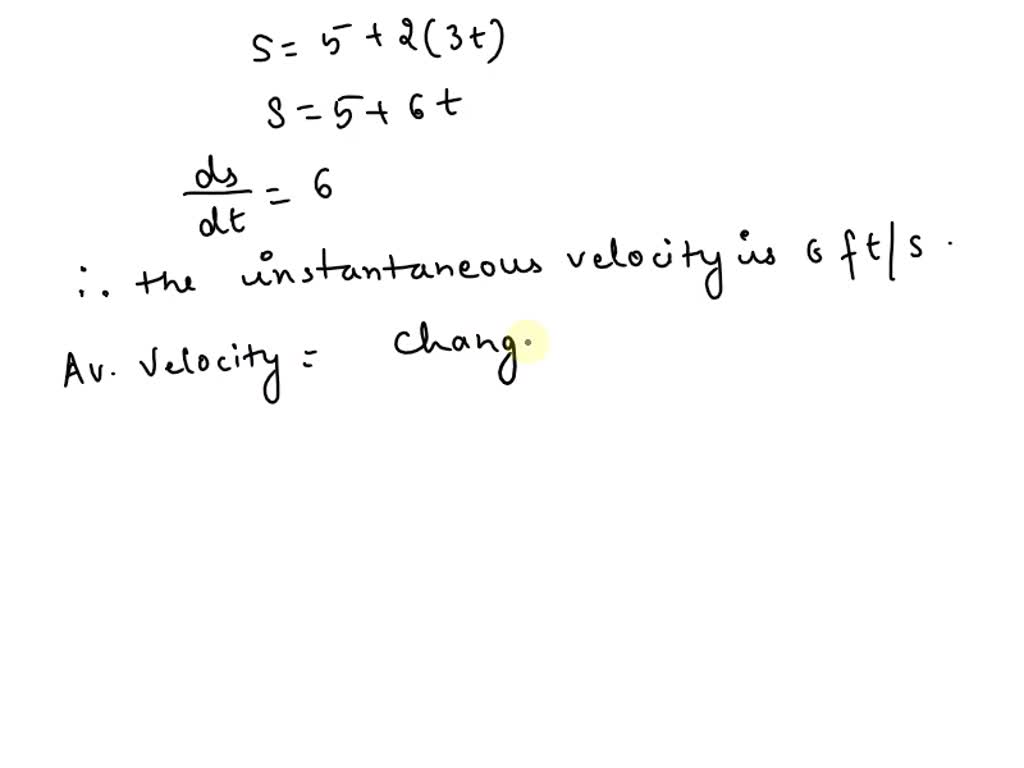 S = 5 + 2(3t)
S = 5 + 6t
ds/dt = 6
∴ the instantaneous velocity is 6 ft/s.
Av. Velocity = Chang